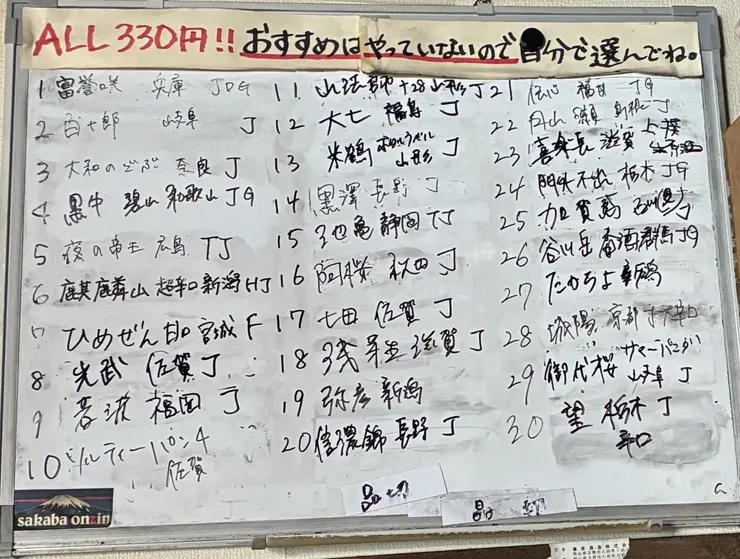 ALL 330円!! おすすめはやっていないので自分で選んでね。
1 富誉咲 兵庫 J吟
2 百十郎 岐阜 J
3 大和のどぶ 奈良 J
4 黒牛 碧山 和歌山 JG
5 夜の帝王 広島 TJ
6 麒麟山 超辛口 新潟 HJ
7 ひめぜん 甘口 宮城 F
8 光武 佐賀 J
9 若波 福岡 J
10 ギルティーパンチ
佐賀
11 山法師 +28 山形 J
12 大七 福島 J
13 米鶴 山形 J
14 黒澤 長野 J
15 白隠 静岡 TJ
16 阿櫻 秋田 J
17 七田 佐賀 J
18 浅茅生 滋賀 J
19 弥彦 新潟
20 信濃錦 長野 J
21 伝心 福井 JG
22 J
23 喜楽長 滋賀 上撰
24 門外不出 栃木 JG
25 加賀鳶 石川 J
26 谷川岳 群馬 JG
27 たかちよ 新潟
28 城陽 京都 J 大辛口
29 御代桜 岐阜 J
30 望 栃木 J
辛口
品切
品切
sakaba onzin